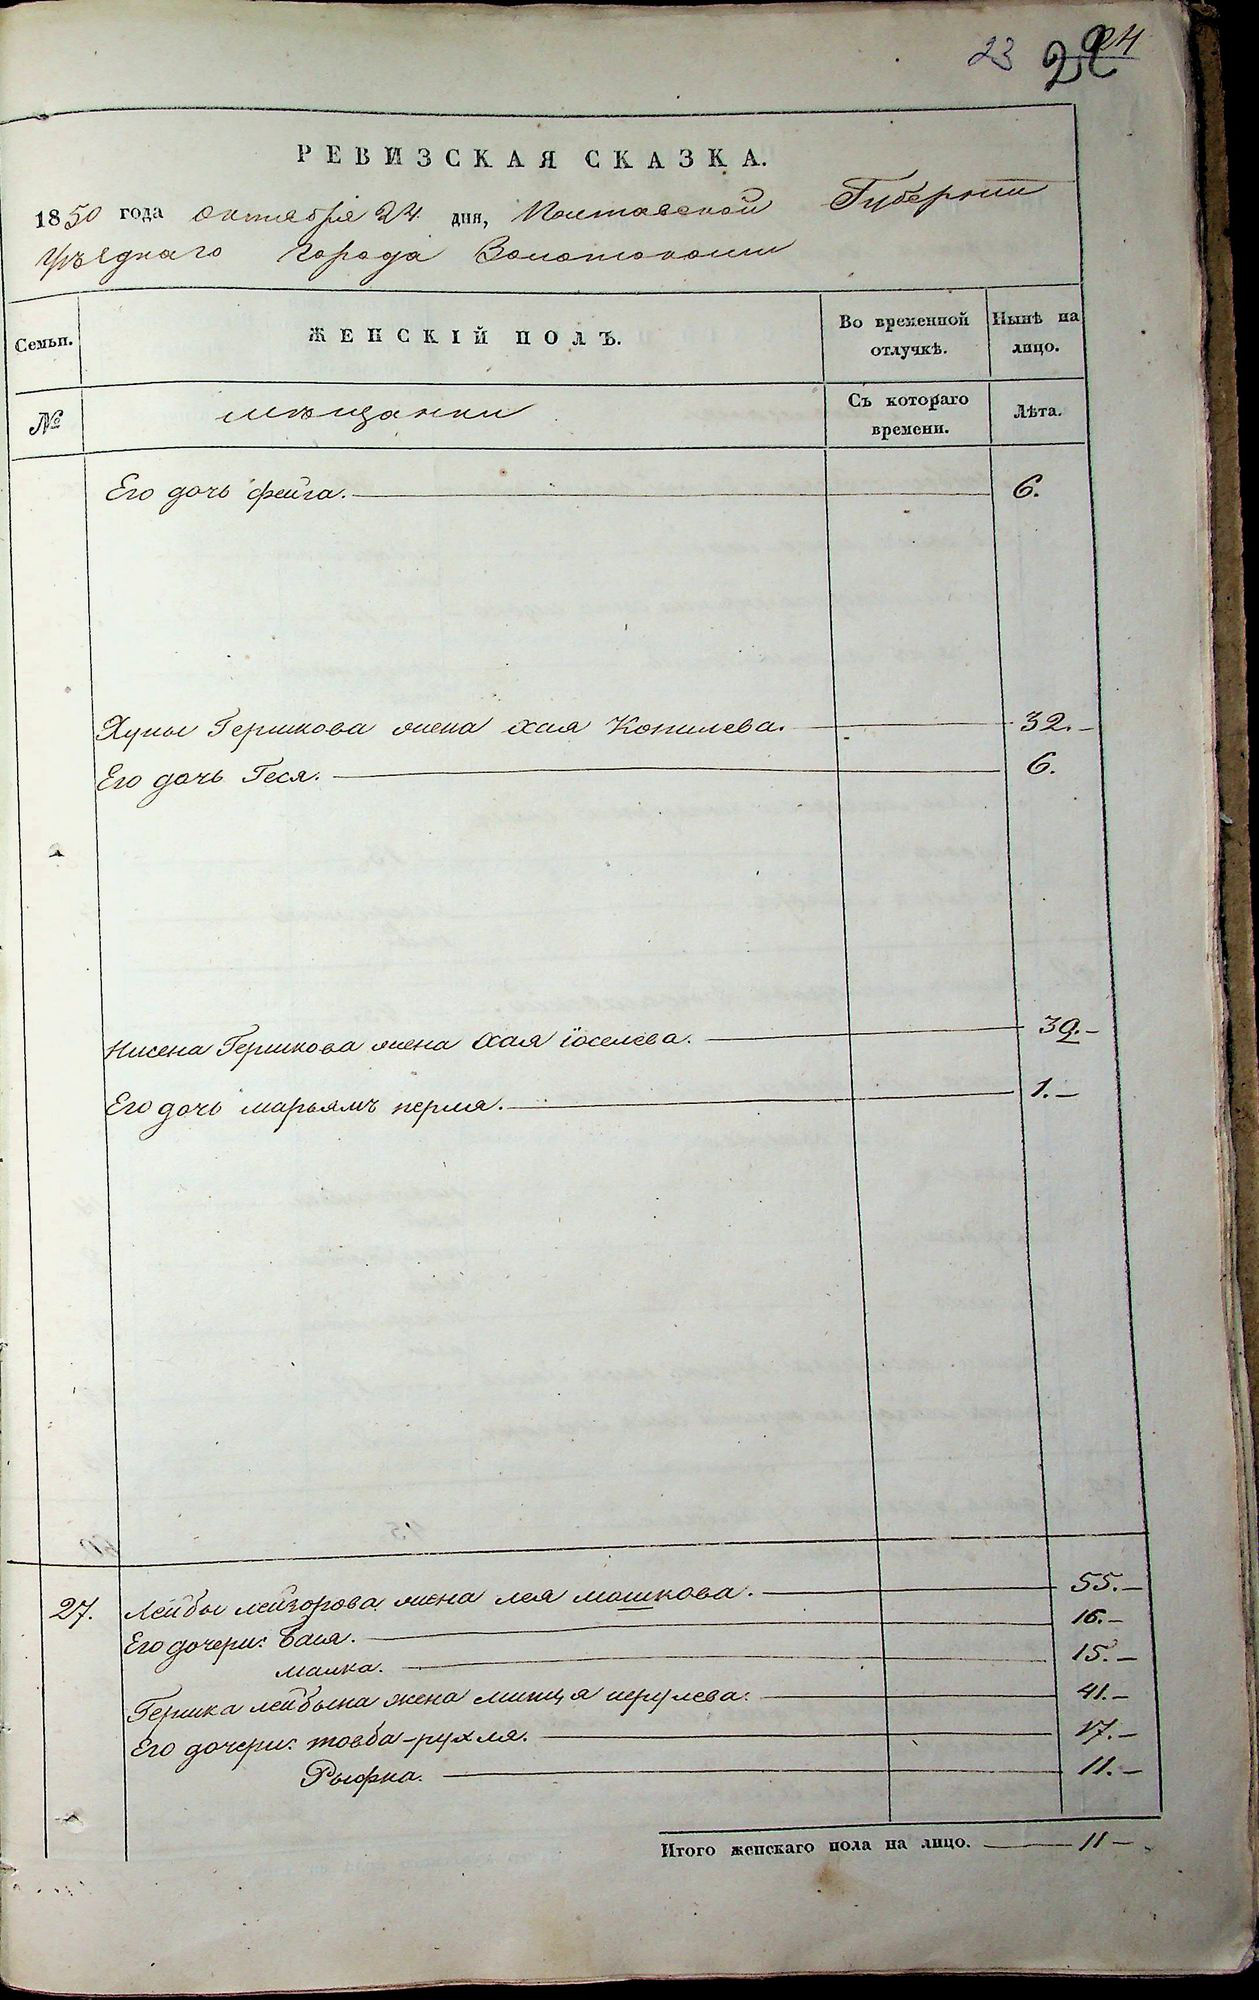 23 22 24
РЕВИЗСКАЯ СКАЗКА.
1850 года октября 24 дня, Полтавской Губернии
Уѣзднаго Города Золотоноши
Семьи. ЖЕНСКІЙ ПОЛЪ. Во временной отлучкѣ. Нынѣ на лицо.
№ мѣщанки Съ котораго времени. Лѣта.
Его дочь фейга. 6.
Хуны Гершкова жена хая Копилева. 32.
Его дочь Геся. 6.
Нисена Гершкова жена Хая іоселева. 39.
Его дочь марьямъ перля. 1.
27. Лейбы лейзорова жена лея мошкова. 55.
Его дочери: Бася. 16.
малка. 15.
Гершка лейбына жена минця 41.
Его дочери: товба-рухля. 17.
Рыфка. 11.
Итого женскаго пола на лицо. 11